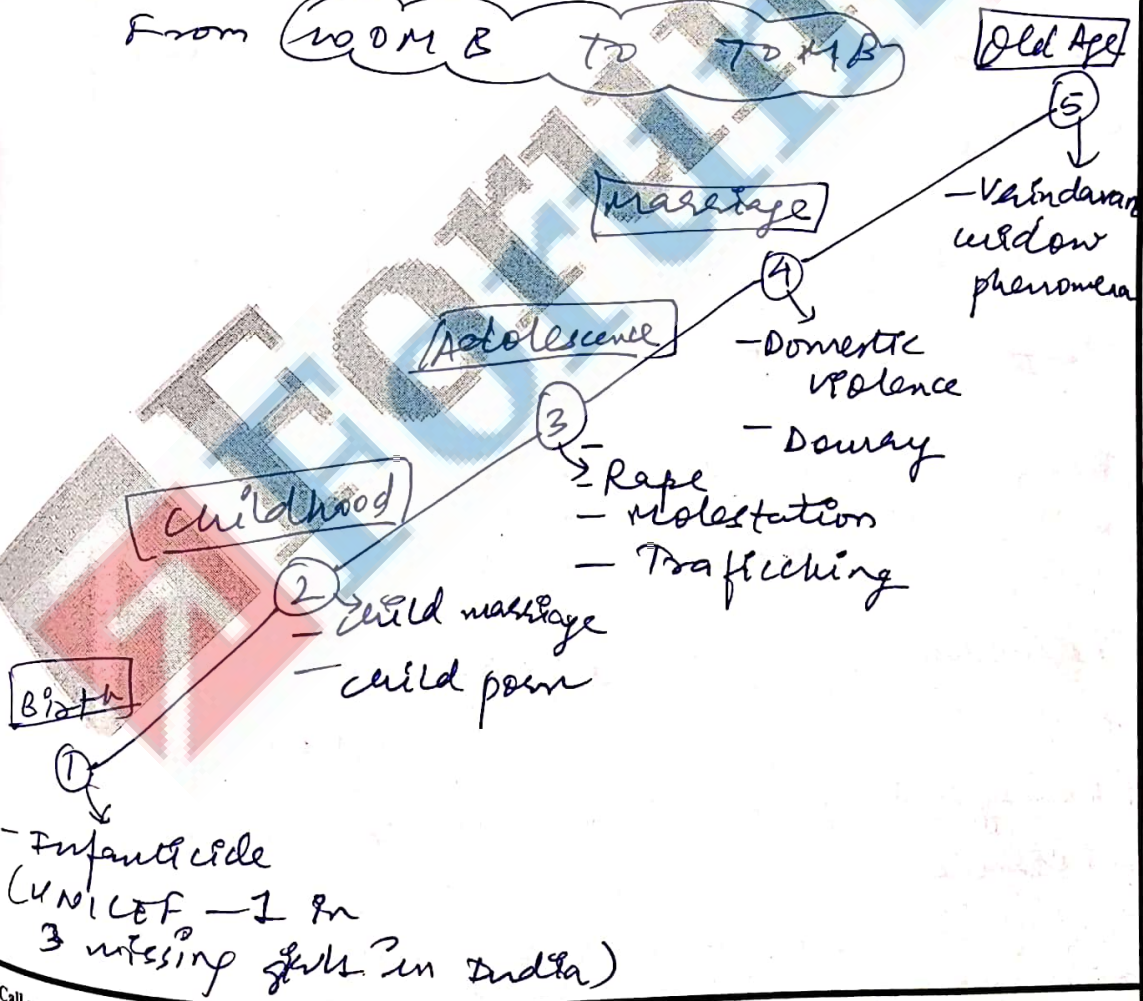 From WOOMB TO TOMB
Old Age
5
- Vrindavan
widow
phenomena
Marriage
4
- Domestic
violence
- Dowry
Adolescence
3
- Rape
- Molestation
- Trafficking
Childhood
2
- Child marriage
- child porn
Birth
1
- Infanticide
(UNICEF - 1 in
3 missing girls in India)
Forum
Call